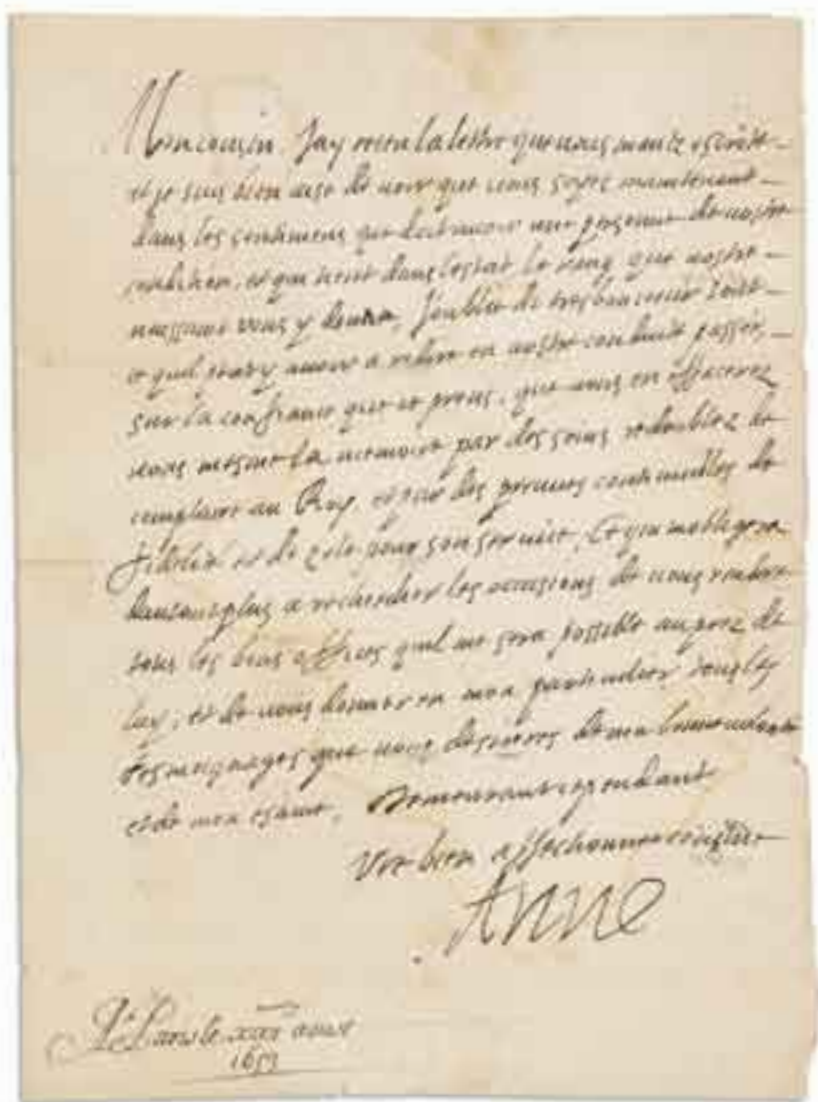 Mon cousin, Jay receu la lettre que vous mavez escritte
et je suis bien aise de voir que vous soyez maintenant
dans les sentimens que doit avoir une personne de vostre
condition, et qui tient dans lestat le rang que vostre
naissance vous y donne, Joublie de tres bon coeur tout
ce quil peut y avoir a redire en vostre conduite passée,
sur la confiance que je prens, que vous en effacerez
vous mesme la memoire par des soins redoublez de
complaire au Roy, et par des preuves continuelles de
fidelité et de zele pour son service, Ce qui mobligera
dautant plus a rechercher les occasions de vous rendre
tous les bons offices quil me sera possible auprez de
luy, et de vous donner en mon particulier tous les
tesmoignages que vous desirerez de ma bienveillance
et de mon estime, Demeurant cependant
Vre bien affectionnée cousine
ANNE
A Paris le aoust
165